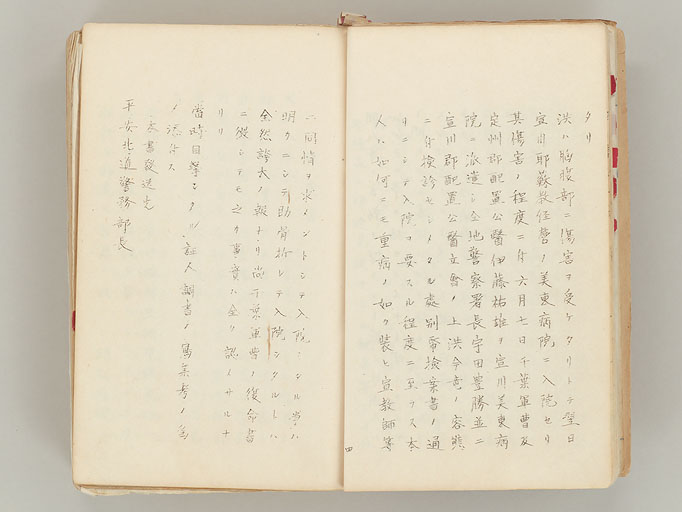 タリ
洪ハ胸腹部ニ傷害ヲ受ケタリトテ翌日
宣川耶蘇教経営ノ美東病院ニ入院セリ
其傷害ノ程度ニ付六月七日千葉軍曹及
定州郡配置公醫伊藤祐雄ヲ宣川美東病
院ニ派遣シ仝地警察署長宇田豊勝並ニ
宣川郡配置公醫立會ノ上洪今竜ノ容態
ニ付検診セシメタル處別紙検案書ノ通
リニシテ入院ヲ要スル程度ニ至ラス本
人ハ如何ニモ重病ノ如ク装ヒ宣教師等
ニ同情ヲ求メントシテ入院シタル学ハ
明カニシテ肋骨折レテ入院シタルトハ
全然誇大ノ報ナリ尚千葉軍曹ノ復命書
ニ徴シテモ之ヲ事実ハ全ク認メサルナ
リ
當時目撃シタル証人調書ノ寫業考ノ為
メ添付ス
本書発送先
平安北道警務部長
四